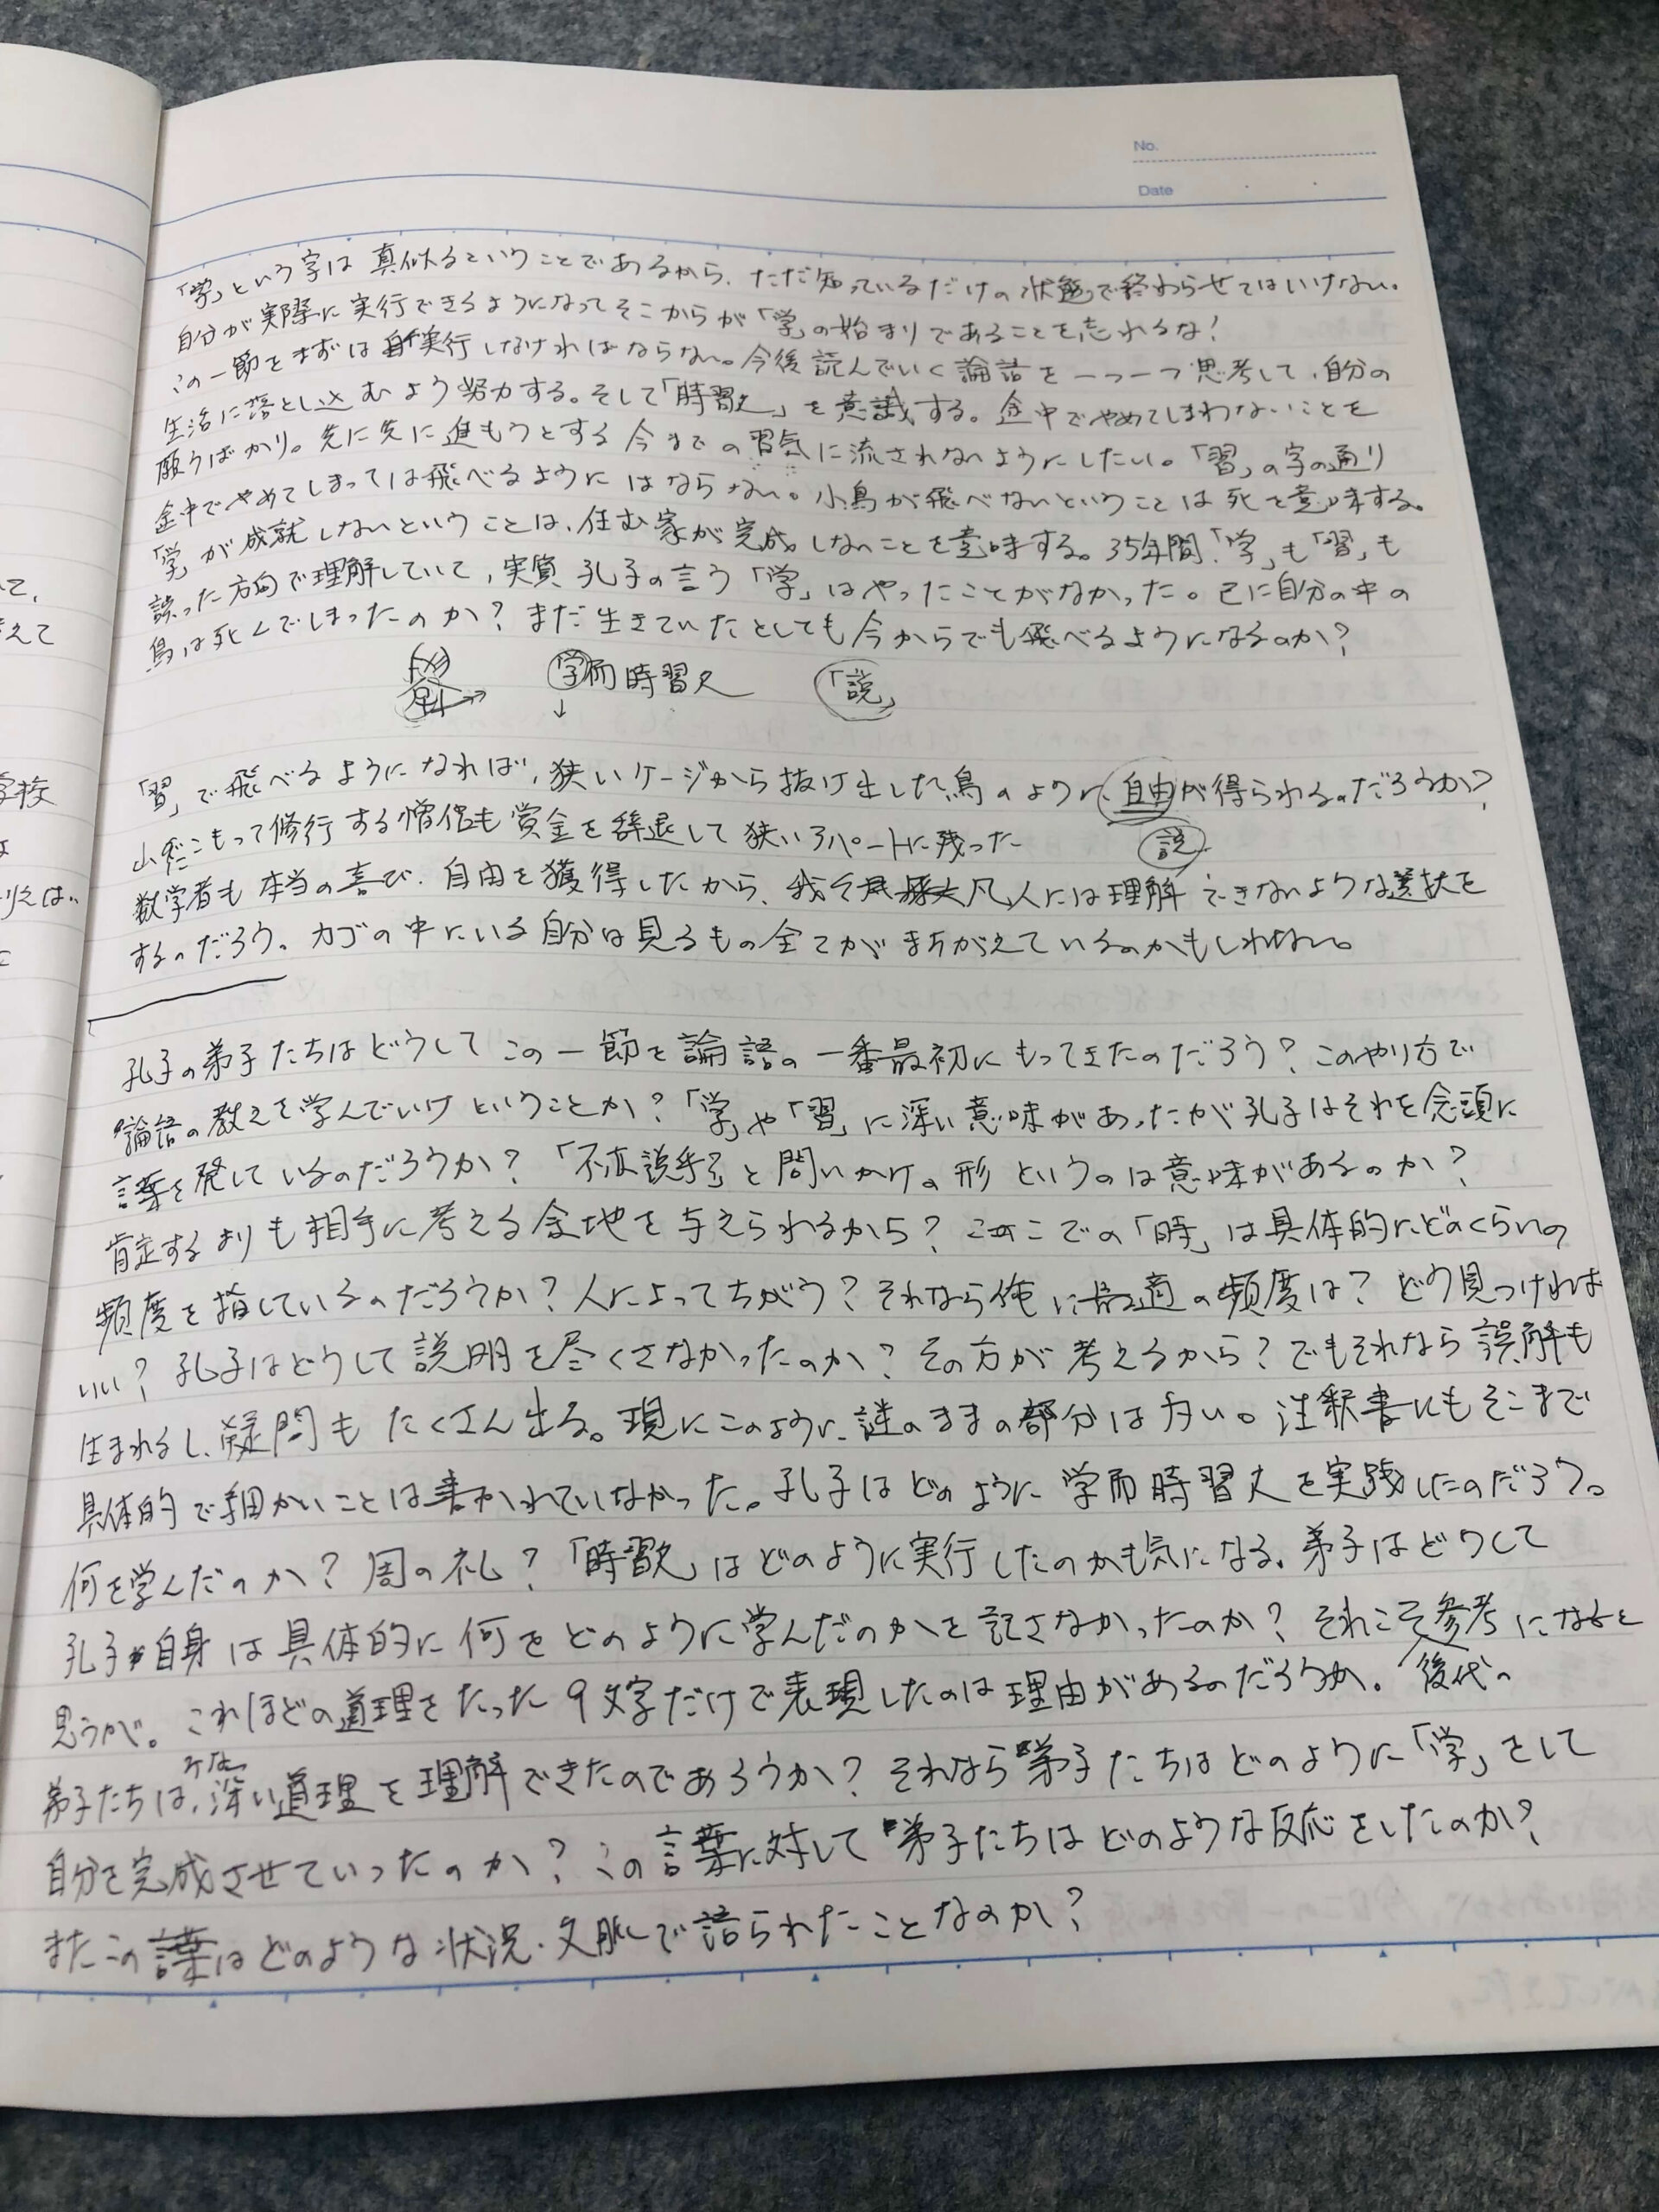 No.
Date
「学」という字は真似るということであるから、ただ知っているだけの状態で終わらせてはいけない。
自分が実際に実行できるようになってそこからが「学」の始まりであることを忘れるな!
この一節をまずは実行しなければならない。今後読んでいく論語を一つ一つ思考して、自分の
生活に落とし込むよう努力する。そして「時習之」を意識する。途中でやめてしまわないことを
願うばかり。先に先に進もうとする今までの習気に流されないようにしたい。「習」の字の通り
途中でやめてしまっては飛べるようにはならない。小鳥が飛べないということは死を意味する。
「学」が成就しないということは、住む家が完成しないことを意味する。35年間「学」も「習」も
誤った方向で理解していて、実質孔子の言う「学」はやったことがなかった。已に自分の中の
鳥は死んでしまったのか?まだ生きていたとしても今からでも飛べるようになるのか?
学而時習之 「説」
「習」で飛べるようになれば、狭いケージから抜け出した鳥のように自由が得られるのだろうか?
山にこもって修行する僧侶も賞金を辞退して狭いアパートに残った 説
数学者も本当の喜び、自由を獲得したから、我々凡人には理解できないような選択を
するのだろう。カゴの中にいる自分は見るもの全てがまちがえているのかもしれない。
孔子の弟子たちはどうしてこの一節を論語の一番最初にもってきたのだろう?このやり方で
論語の教えを学んでいけということか?「学」や「習」に深い意味があったが孔子はそれを念頭に
言葉を発しているのだろうか?「不亦説乎」と問いかけの形というのは意味があるのか?
肯定するよりも相手に考える余地を与えられるから?ここでの「時」は具体的にどのくらいの
頻度を指しているのだろうか?人によってちがう?それなら俺に最適の頻度は?どう見つければ
いい?孔子はどうして説明を尽くさなかったのか?その方が考えるから?でもそれなら誤解も
生まれるし、疑問もたくさん出る。現にこのように謎のままの部分は多い。注釈書にもそこまで
具体的で細かいことは書かれていなかった。孔子はどのように学而時習之を実践したのだろう。
何を学んだのか?周の礼?「時習之」はどのように実行したのかも気になる。弟子はどうして
孔子自身は具体的に何をどのように学んだのかを記さなかったのか?それこそ参考になると
思うが。これほどの道理をたった9文字だけで表現したのは理由があるのだろうか。後代の
弟子たちは、そんな深い道理を理解できたのであろうか?それなら弟子たちはどのように「学」をして
自分を完成させていったのか?この言葉に対して弟子たちはどのような反応をしたのか?
またこの言葉はどのような状況・文脈で語られたことなのか?